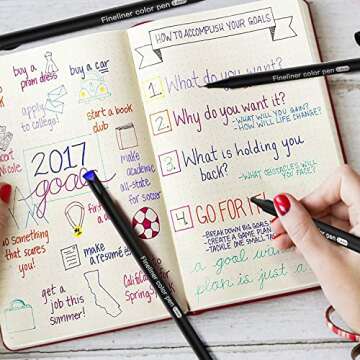 Fineliner color pen
buy a
prom dress
buy a car
apply
to college!
start a book
club
2017
goals
make
academic
all-state
for soccer
find a
do something
that scares
you!
make
a resumé
get a
job this
summer!
California
Spring
Fineliner color pen
HOW TO ACCOMPLISH YOUR GOALS
1. What do you want?
Fineliner color pen
2. Why do you want it?
-WHAT WILL YOU GAIN?
-HOW WILL LIFE CHANGE?
3. What is holding you
back?
-WHAT OBSTACLES WILL
YOU FACE?
4. GO FOR IT!
-BREAK DOWN BIG GOALS
-CREATE A GAME PLAN
-TACKLE ONE SMALL
a goal
plan is just a
Fineliner color pen